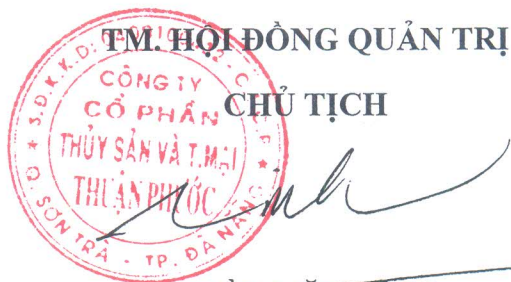 TM. HỘI ĐỒNG QUẢN TRỊ
CHỦ TỊCH
CÔNG TY
CỔ PHẦN
THỦY SẢN VÀ T.MẠI
THUẬN PHƯỚC
S.Đ.K.K.D:
Q. SƠN TRÀ - TP. ĐÀ NẴNG